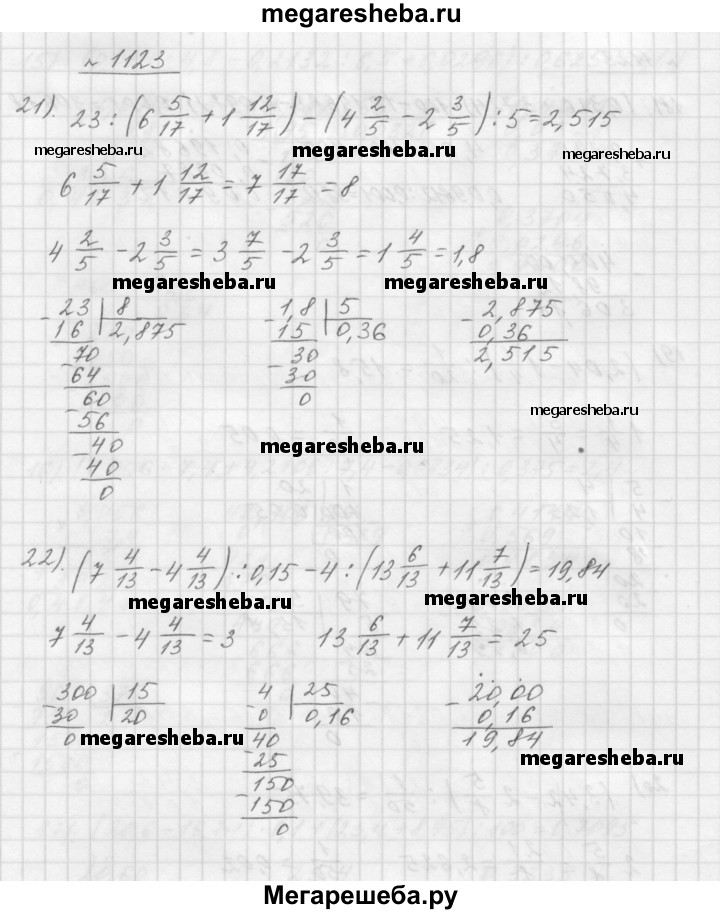 megaresheba.ru
№ 1123
21). 23 : (6 5/17 + 1 12/17) - (4 2/5 - 2 3/5) : 5 = 2,515
megaresheba.ru megaresheba.ru megaresheba.ru
6 5/17 + 1 12/17 = 7 17/17 = 8
4 2/5 - 2 3/5 = 3 7/5 - 2 3/5 = 1 4/5 = 1,8
megaresheba.ru megaresheba.ru
- 23 | 8
16 | 2,875
70
- 64
60
- 56
- 40
40
0
- 1,8 | 5
15 | 0,36
30
- 30
0
- 2,875
0,36
2,515
megaresheba.ru
megaresheba.ru
22). (7 4/13 - 4 4/13) : 0,15 - 4 : (13 6/13 + 11 7/13) = 19,84
megaresheba.ru megaresheba.ru
7 4/13 - 4 4/13 = 3 13 6/13 + 11 7/13 = 25
- 300 | 15
30 | 20
0
- 4 | 25
0 | 0,16
40
- 25
150
- 150
0
- 20,00
0,16
19,84
megaresheba.ru
megaresheba.ru
Мегарешеба.ру